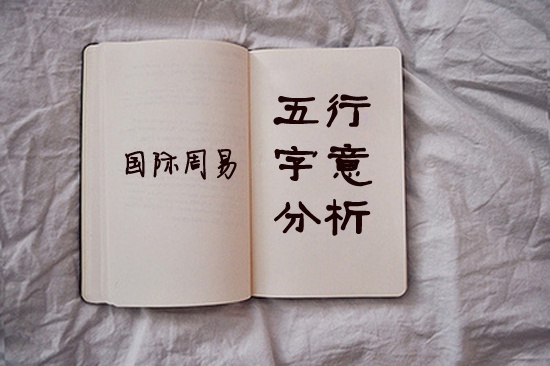 国际周易
五行
字意
分析